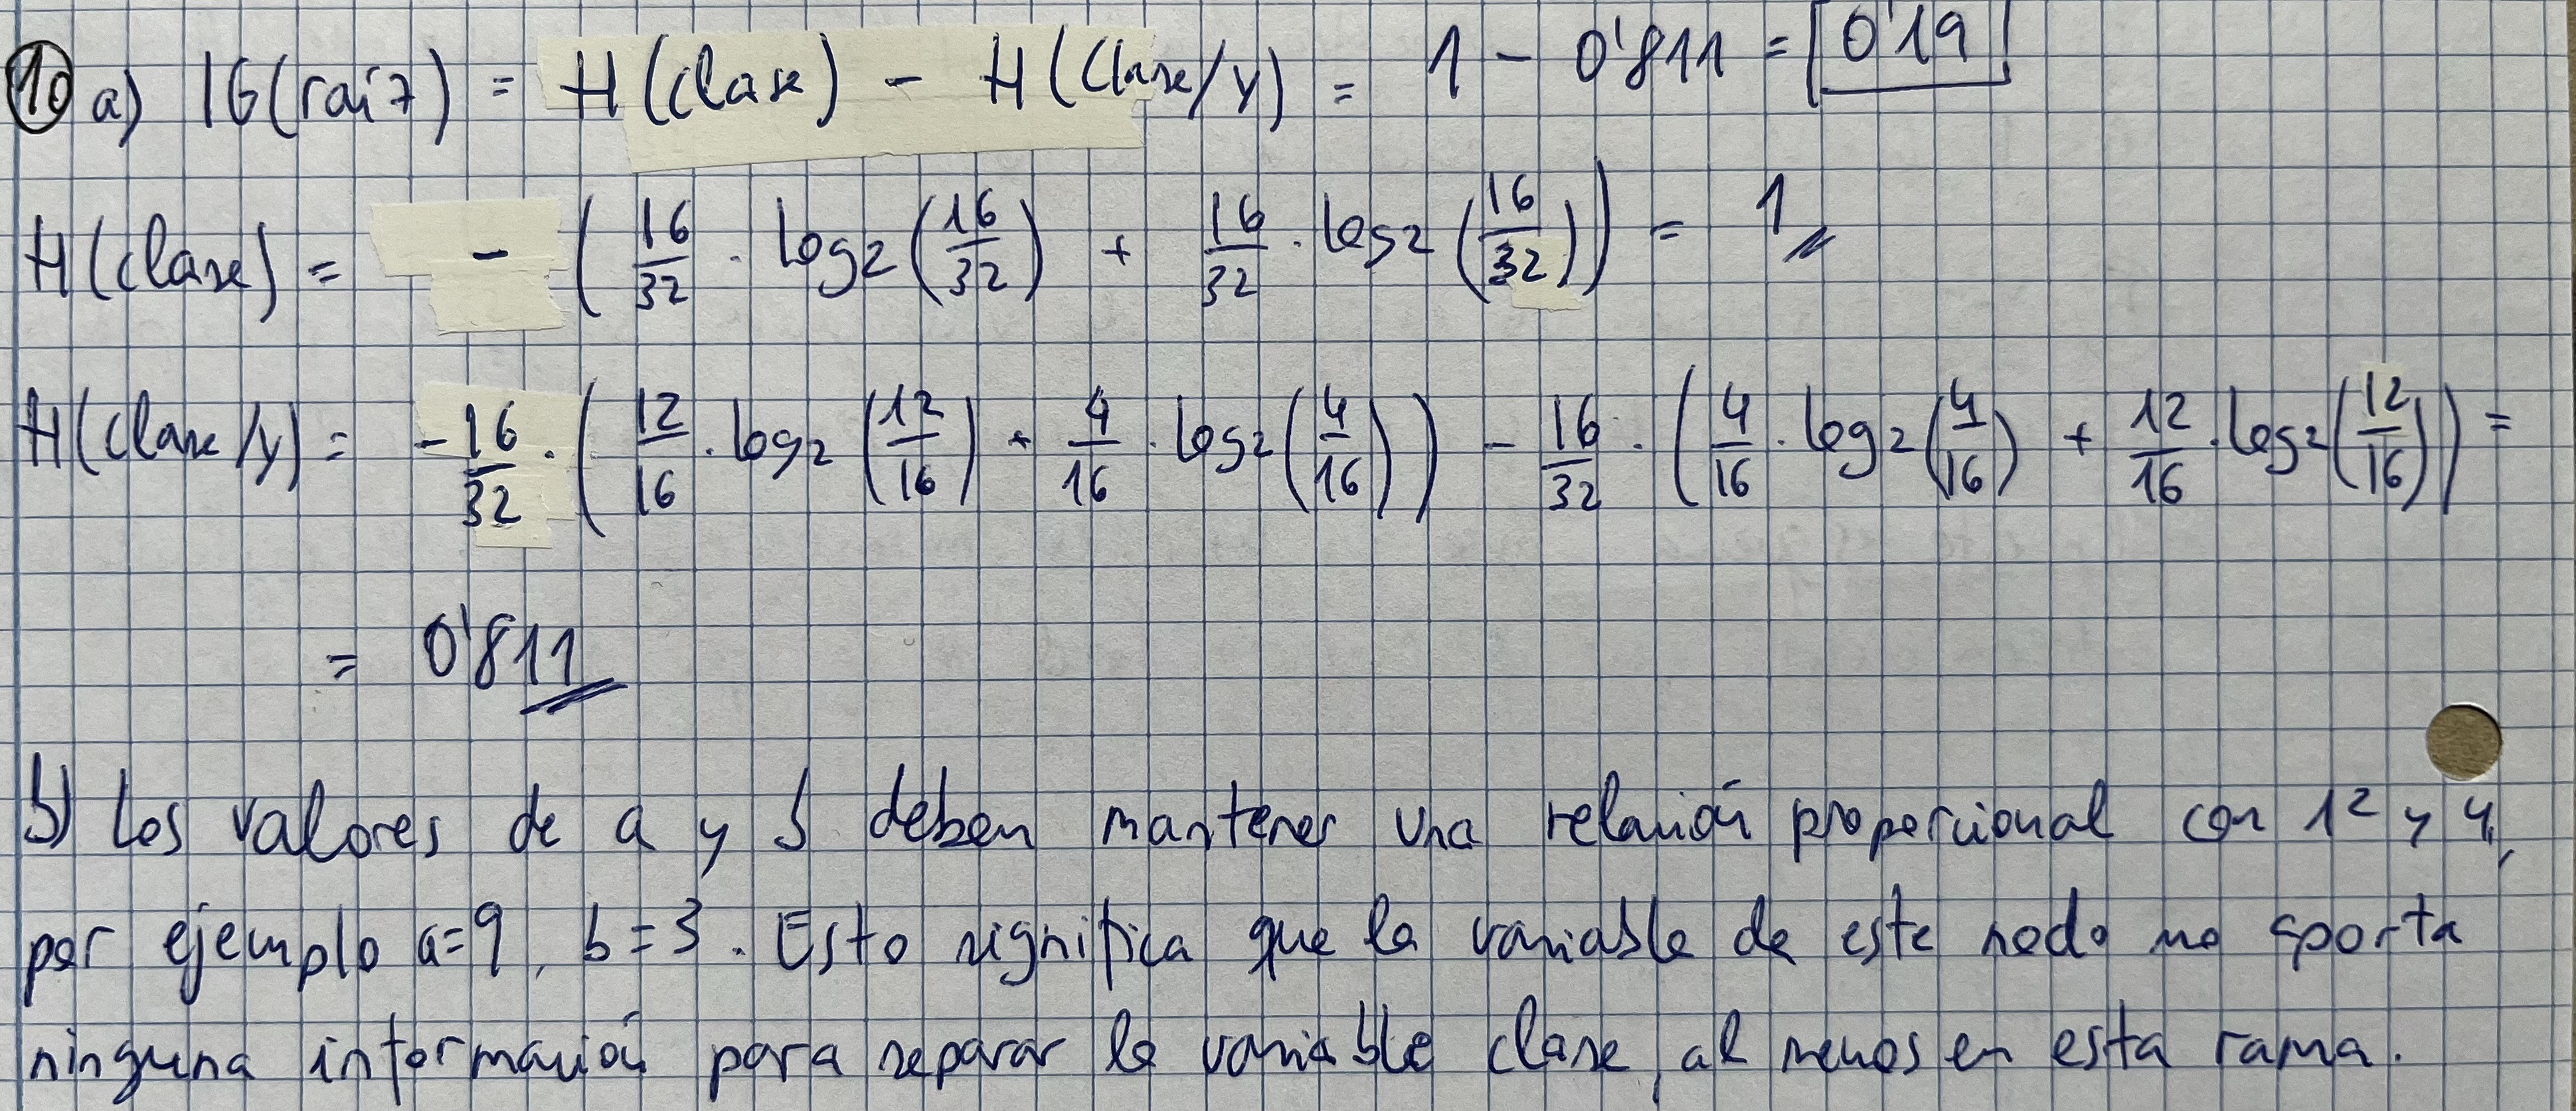 10 a) IG(raíz) = H(clase) - H(clase/y) = 1 - 0'811 = 0'19
H(clase) = - (16/32 · log2(16/32) + 16/32 · log2(16/32)) = 1
H(clase/y) = -16/32 · (12/16 · log2(12/16) + 4/16 · log2(4/16)) - 16/32 · (4/16 · log2(4/16) + 12/16 · log2(12/16)) =
= 0'811
b) Los valores de a y b deben mantener una relación proporcional con 12 y 4,
por ejemplo a=9, b=3. Esto significa que la variable de este nodo no aporta
ninguna información para separar la variable clase, al menos en esta rama.